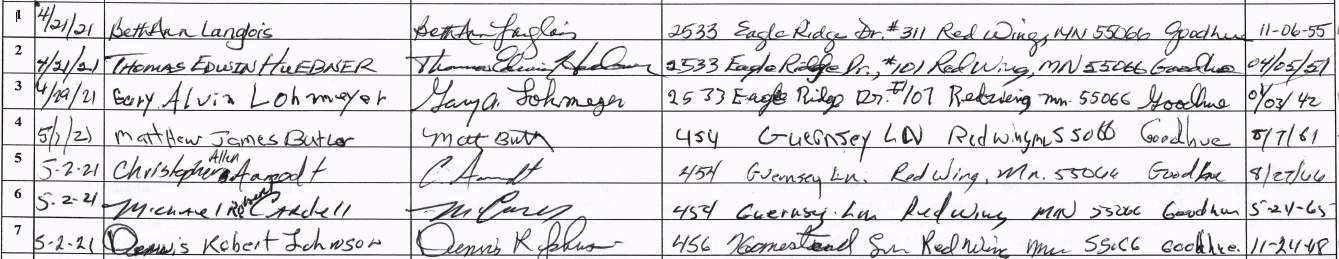 1 4/21/21 BethAnn Langlois BethAnn Langlois 2533 Eagle Ridge Dr. #311 Red Wing, MN 55066 Goodhue 11-06-55
2 4/21/21 THOMAS EDWIN HUEBNER Thomas Edwin Huebner 2533 Eagle Ridge Dr., #101 Red Wing, MN 55066 Goodhue 04/05/51
3 4/29/21 Gary Alvin Lohmeyer Gary A. Lohmeyer 2533 Eagle Ridge Dr. #107 Redwing mn. 55066 Goodhue 01/03/42
4 5/1/21 Matthew James Butler Matt Butl 454 Guernsey LN Redwing mn 55066 Goodhue 8/7/61
5 5-2-21 Christopher Allen Aamodt C. Aamodt 454 Guernsey Ln. Red Wing, Mn. 55066 Goodhue 8/27/66
6 5-2-21 Michael Cardell 454 Guernsey Ln Red Wing MN 55066 Goodhue 5-24-65
7 5-2-21 Dennis Robert Johnson Dennis R Johnson 456 Homestead Red Wing Mn 55066 Goodhue. 11-24-48